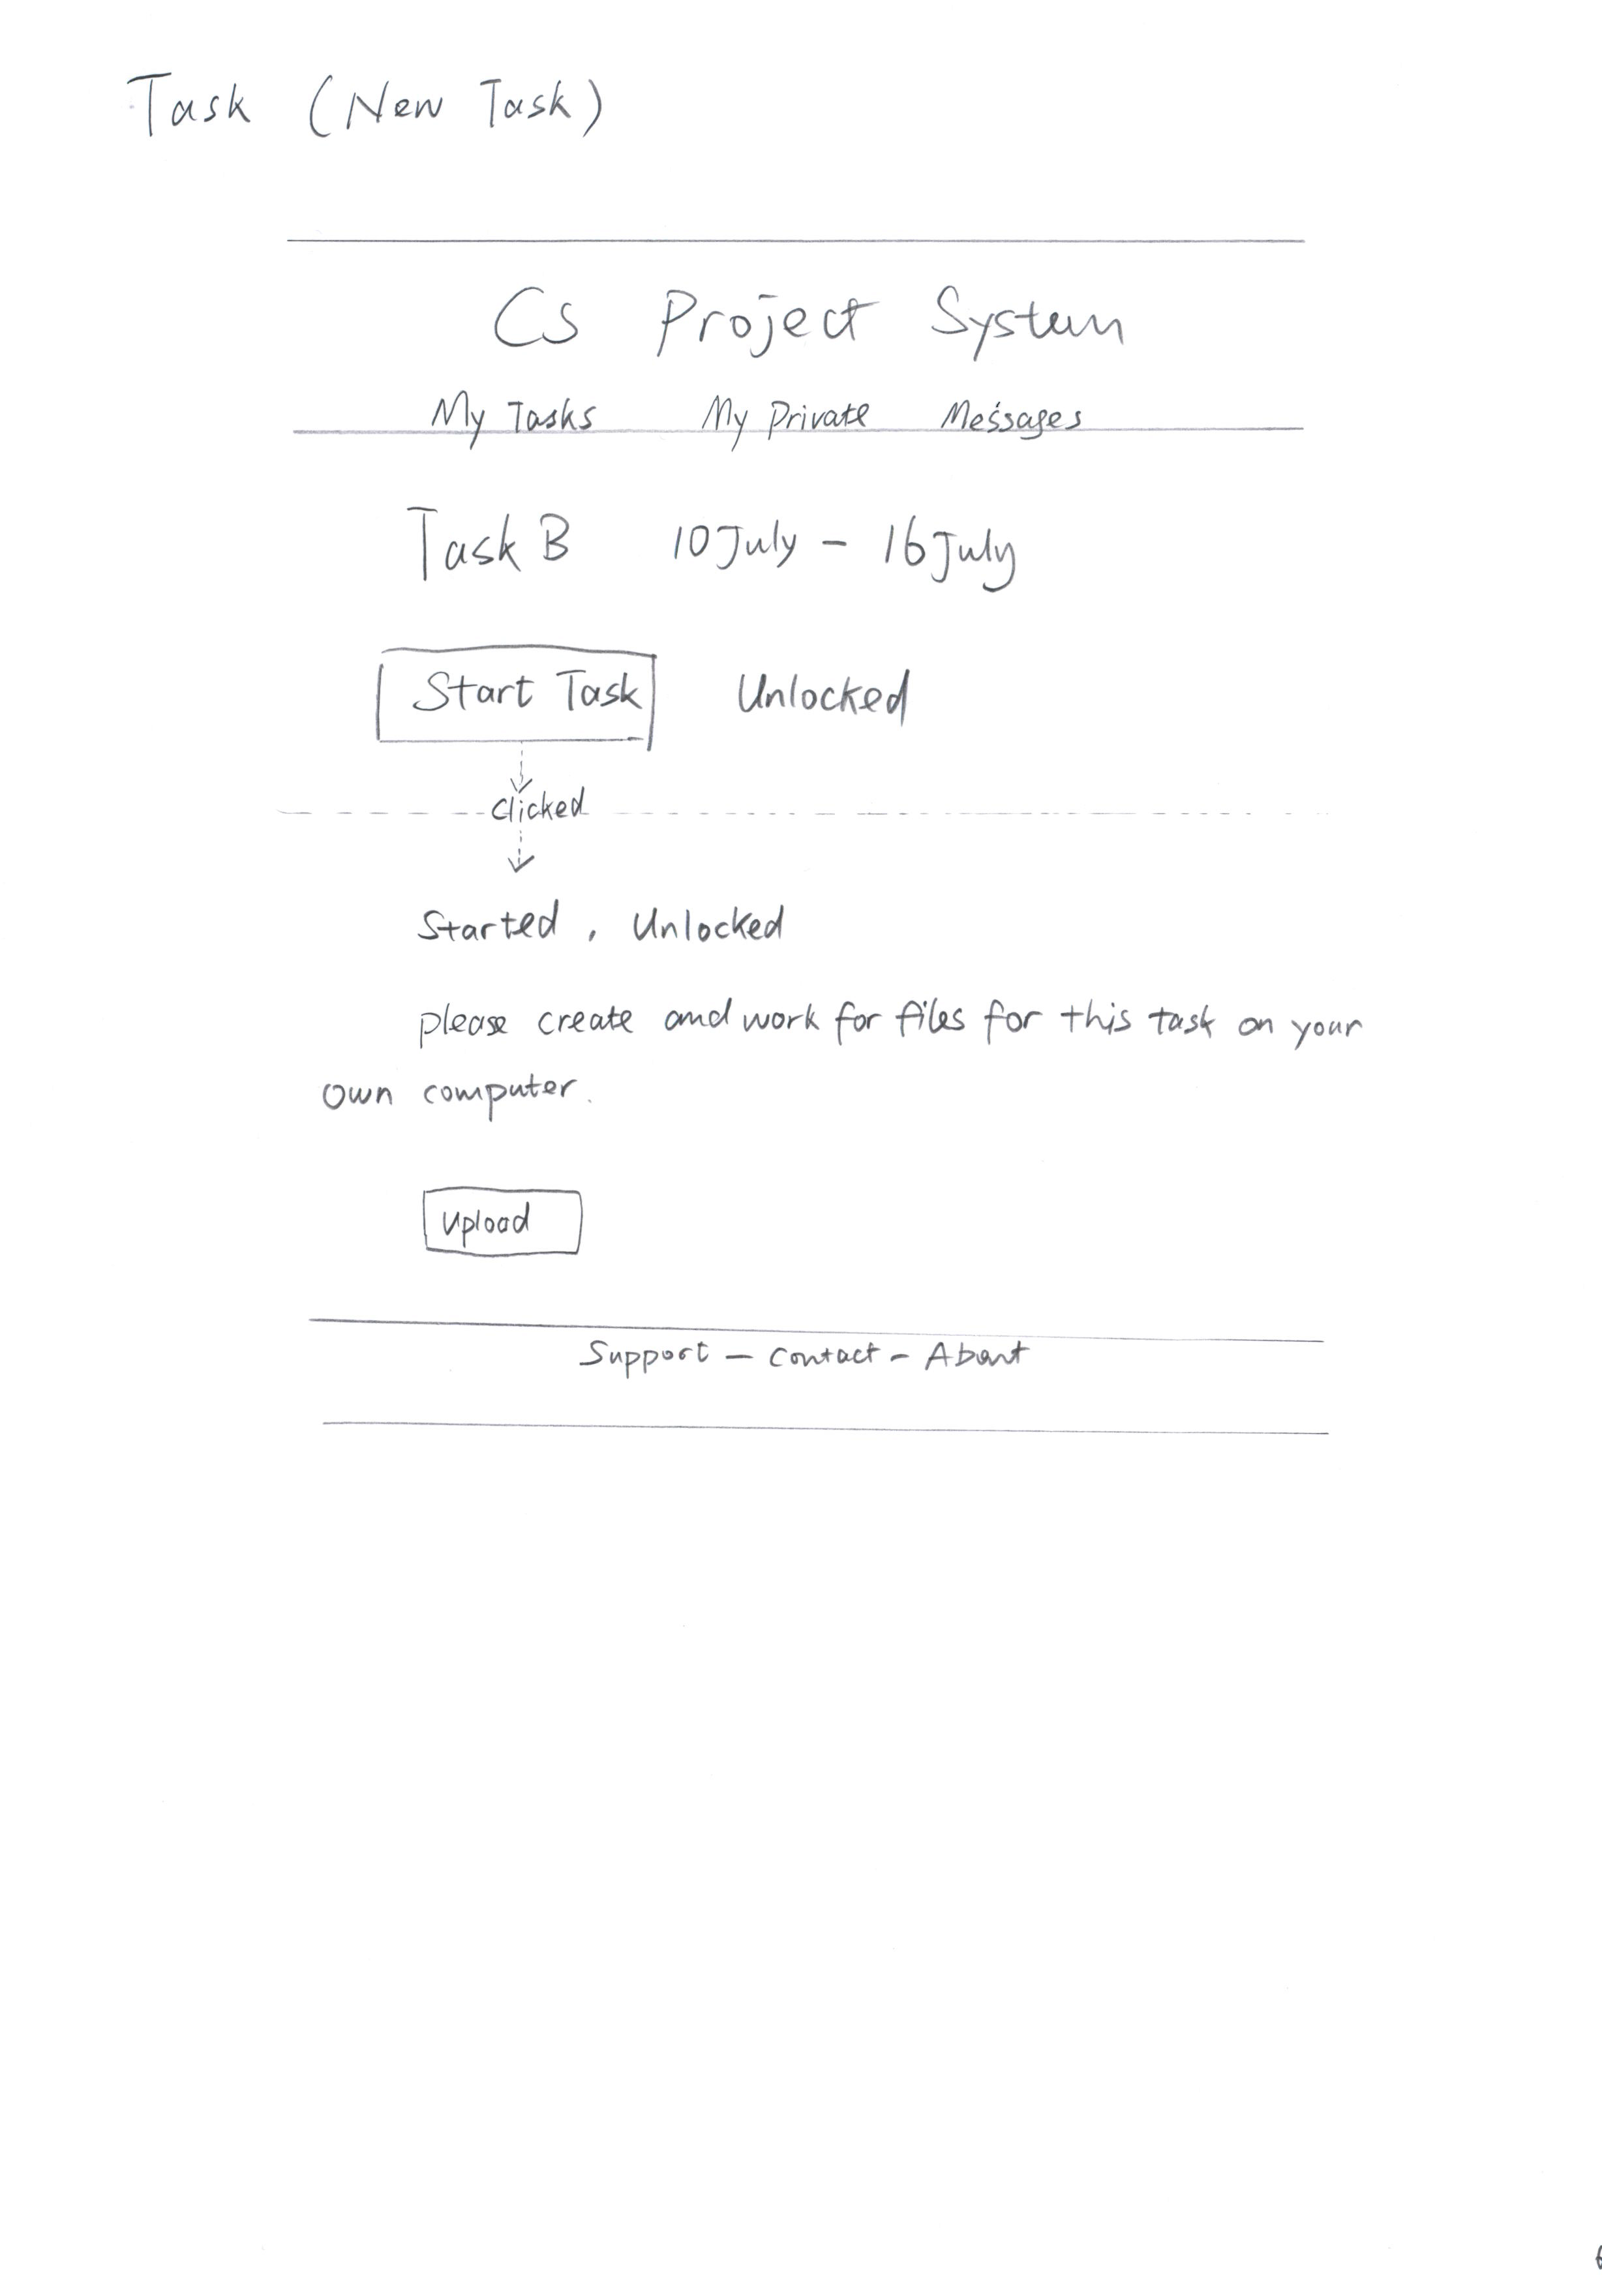 Task (New Task)
Cs Project System
My Tasks My Private Messages
Task B 10 July - 16 July
Start Task Unlocked
clicked
Started, Unlocked
please create and work for files for this task on your
own computer.
Upload
Support - Contact - About